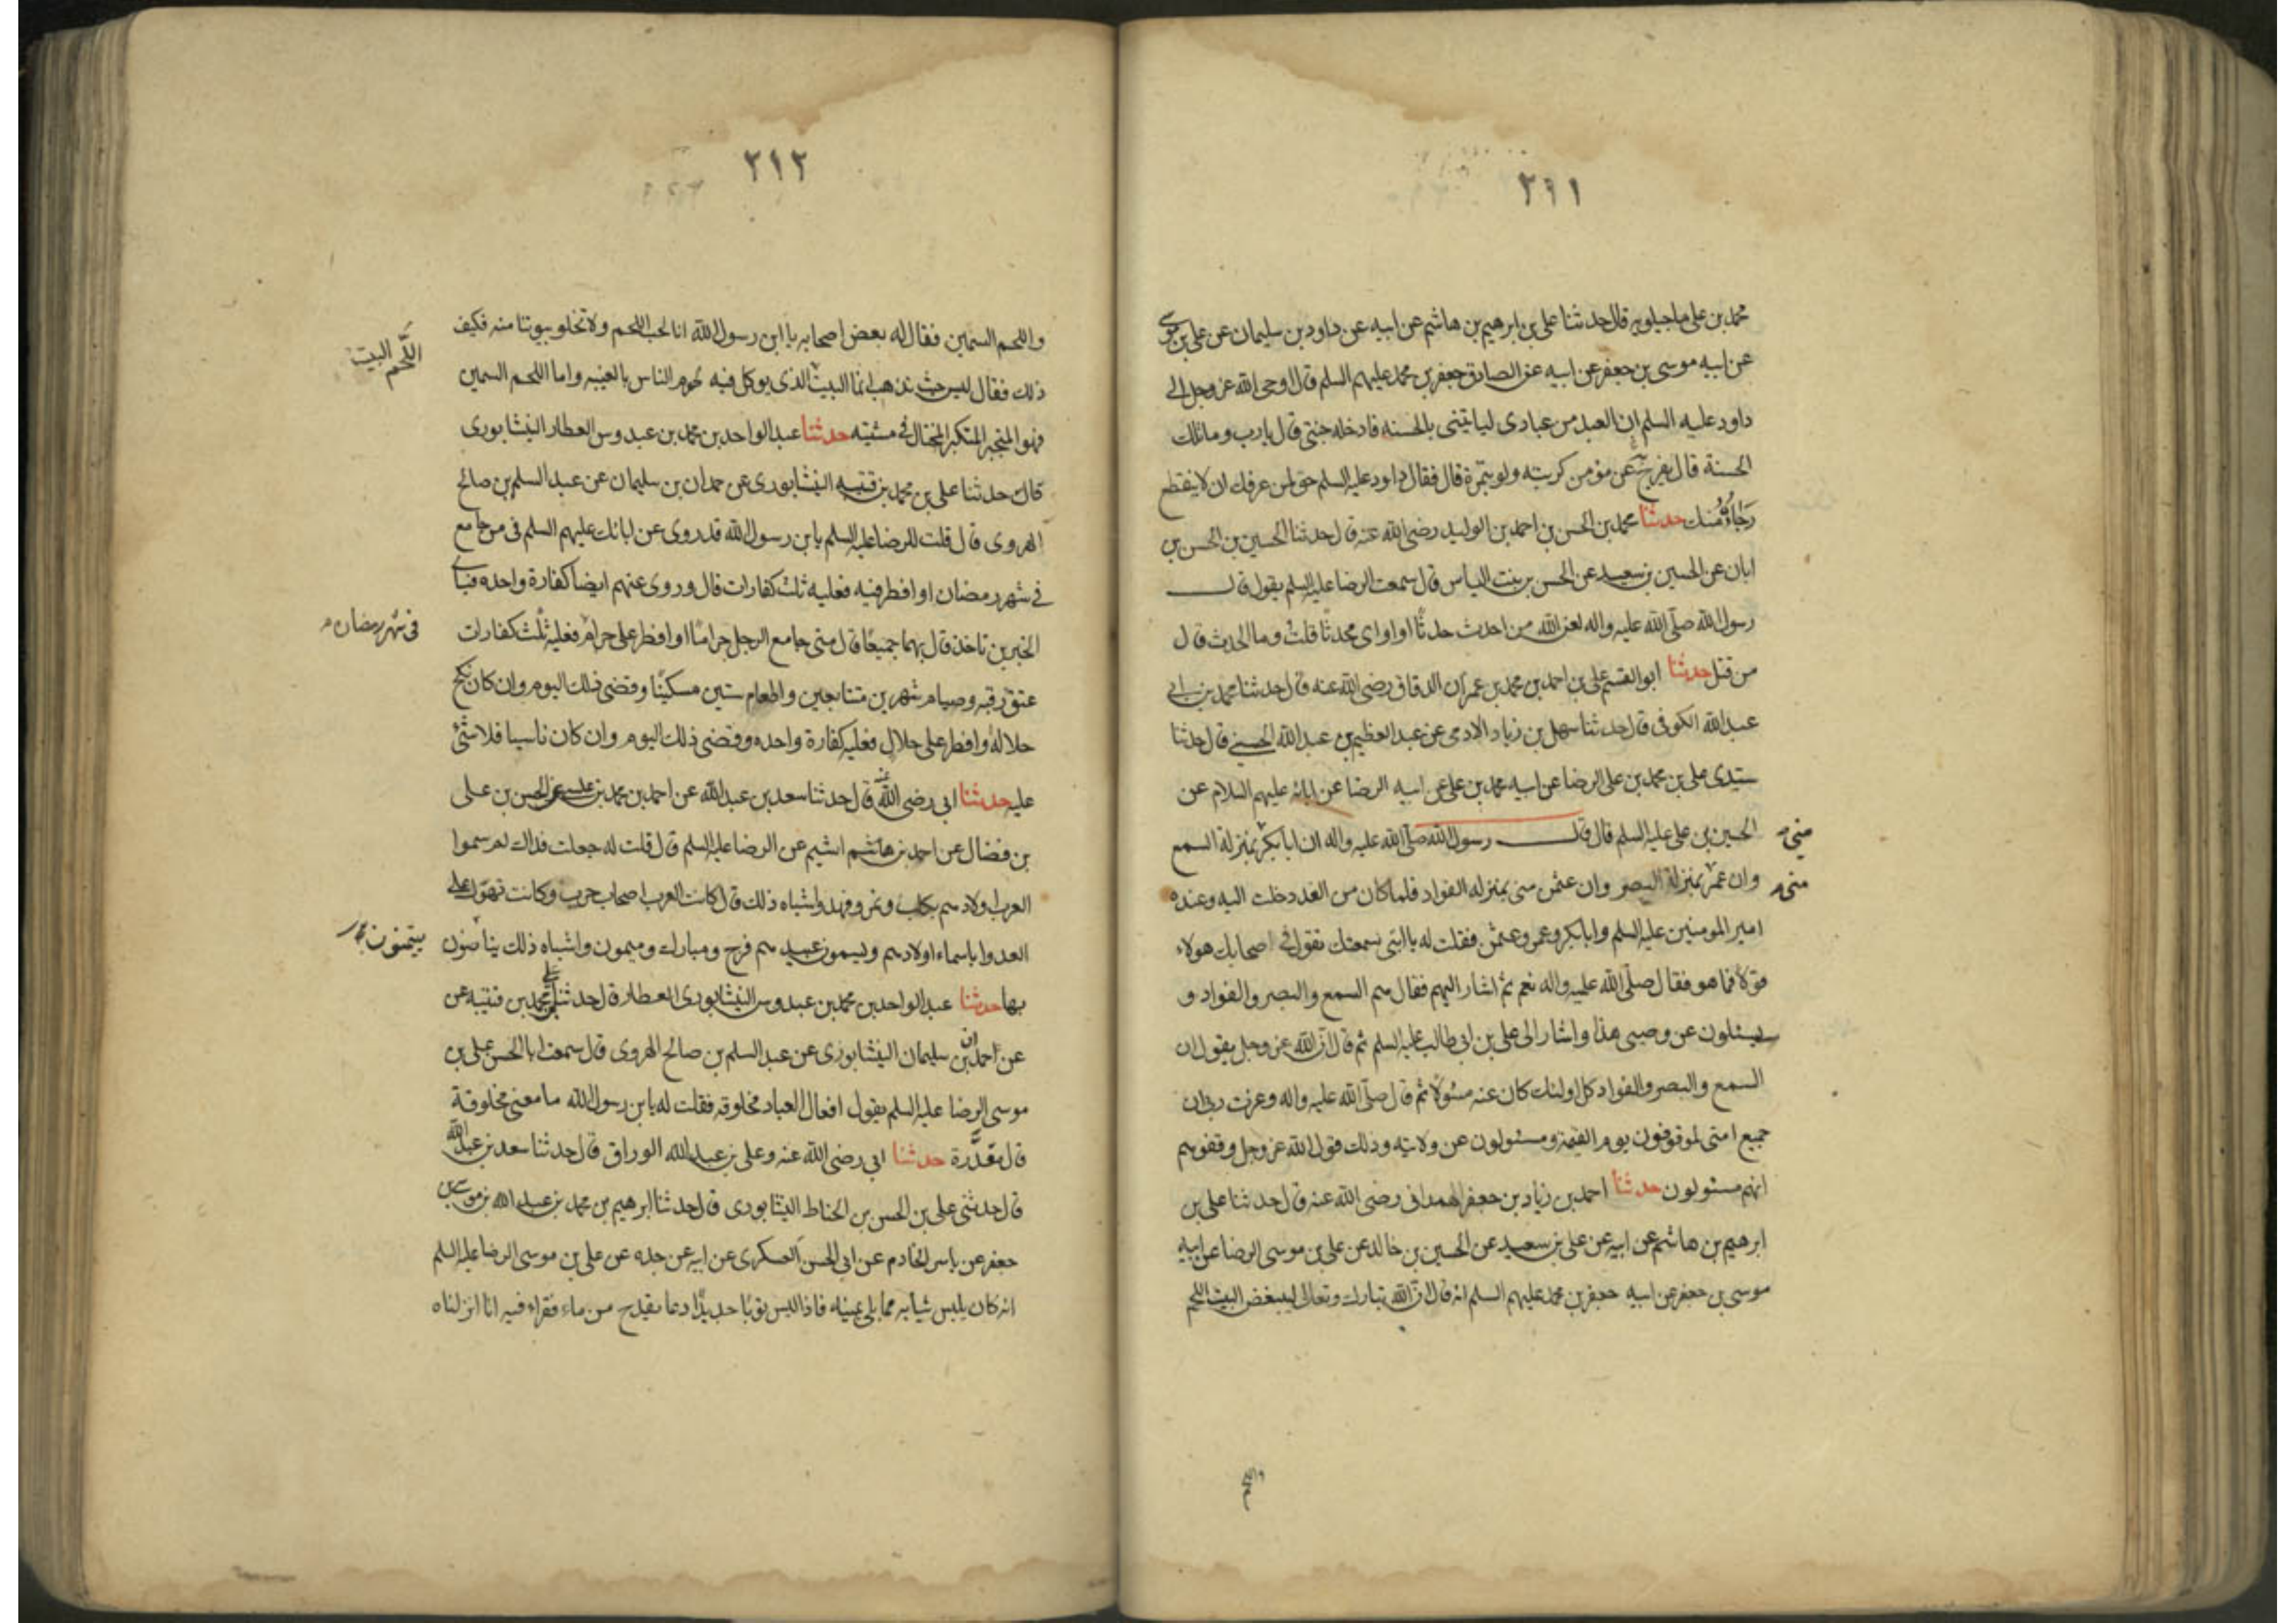 ٢١١
محمد بن علي ماجيلويه قال حدثنا علي بن ابرهيم بن هاشم عن ابيه عن داود بن سليمان عن علي بن موسى
عن ابيه موسى بن جعفر عن ابيه عن الصادق جعفر بن محمد عليهم السلم قال اوحى الله عز وجل الى
داود عليه السلم ان العبد من عبادى لياتينى بالحسنه فادخله جنتى قال يا رب وما تلك
الحسنة قال يفرج عن مؤمن كربته ولو بتمرة قال فقال داود عليه السلم حق لمن عرفك ان لا ينقطع
رجاؤه منك حدثنا محمد بن الحسن بن احمد بن الوليد رضى الله عنه قال حدثنا الحسين بن الحسن بن
ابان عن الحسين بن سعيد عن الحسن بن بنت الياس قال سمعت الرضا عليه السلم يقول قال
رسول الله صلى الله عليه واله لعن الله من احدث حدثا او اوى محدثا قلت وما الحدث قال
من قتل حدثنا ابو القسم علي بن احمد بن محمد بن عمران الدقاق رضى الله عنه قال حدثنا محمد بن ابي
عبد الله الكوفى قال حدثنا سهل بن زياد الادمى عن عبد العظيم بن عبد الله الحسنى قال حدثنا
سيدى علي بن محمد بن علي الرضا عن ابيه محمد بن علي عن ابيه الرضا عن ابائه عليهم السلام عن
الحسين بن علي عليه السلم قال قال رسول الله صلى الله عليه واله ان ابا بكر بمنزلة السمع
منى
وان عمر بمنزلة البصر وان عثمن منى بمنزله الفواد فلما كان من الغد دخلت اليه وعنده
منى
امير المومنين عليه السلم وابا بكر وعمر وعثمن فقلت له يا ابتى سمعتك تقول فى اصحابك هولاء
قولا فما هو فقال صلى الله عليه واله نعم ثم اشار اليهم فقال هم السمع والبصر والفواد و
سيسئلون عن وصيى هذا واشار الى علي بن ابى طالب عليه السلم ثم قال ان الله عز وجل يقول ان
السمع والبصر والفواد كل اولئك كان عنه مسئولا ثم قال صلى الله عليه واله وعزت ربى ان
جميع امتى لموقوفون يوم القيمة ومسئولون عن ولايته وذلك قول الله عز وجل وقفوهم
انهم مسئولون حدثنا احمد بن زياد بن جعفر الهمدانى رضى الله عنه قال حدثنا علي بن
ابرهيم بن هاشم عن ابيه عن علي بن سعيد عن الحسين بن خالد عن علي بن موسى الرضا عن ابيه
موسى بن جعفر عن ابيه جعفر بن محمد عليهم السلم انه قال ان الله تبارك وتعالى ليبغض البيت اللحم
واللحم
٢١٢
واللحم السمين فقال له بعض اصحابه يا ابن رسول الله انا لنحب اللحم ولا تخلو بيوتنا منه فكيف
ذلك فقال ليس حيث تذهب انما البيت الذى يوكل فيه لحوم الناس بالغيبه واما اللحم السمين
اللحم البيت
فهو المتجبر المتكبر المختال فى مشيته حدثنا عبد الواحد بن محمد بن عبدوس العطار النيشابورى
قال حدثنا علي بن محمد بن قتيبه النيشابورى عن حمدان بن سليمان عن عبد السلم بن صالح
الهروى قال قلت للرضا عليه السلم يا بن رسول الله قد روى عن ابائك عليهم السلم فى من جامع
فى شهر رمضان او افطر فيه فعليه ثلث كفارات قال وروى عنهم ايضا كفارة واحده فباى
الخبرين ناخذ قال بهما جميعا قال متى جامع الرجل حراما او افطر على حرام فعليه ثلث كفارات
فى شهر رمضان
عتق رقبه وصيام شهرين متتابعين واطعام ستين مسكينا وقضى ذلك اليوم وان كان نكح
حلالا وافطر على حلال فعليه كفارة واحده وقضى ذلك اليوم وان كان ناسيا فلا شئ
عليه حدثنا ابى رضى الله عنه قال حدثنا سعد بن عبد الله عن احمد بن محمد بن عيسى عن الحسن بن علي
بن فضال عن احمد بن هاشم اشيم عن الرضا عليه السلم قال قلت له جعلت فداك لم سموا
العرب اولادهم بكلب ونمر وفهد واشباه ذلك قال كانت العرب اصحاب حرب وكانت تهول على
العدوا باسماء اولادهم ويسمون عبيدهم فرح ومبارك وميمون واشباه ذلك
يتيمنون
بها حدثنا عبد الواحد بن محمد بن عبدوس النيشابورى العطار قال حدثنا علي بن محمد بن قتيبه عن
عن احمد بن سليمان النيشابورى عن عبد السلم بن صالح الهروى قال سمعت ابا الحسن علي بن
موسى الرضا عليه السلم يقول افعال العباد مخلوقه فقلت له يا بن رسول الله ما معنى مخلوقة
قال مقدرة حدثنا ابى رضى الله عنه وعلى بن عبد الله الوراق قال حدثنا سعد بن عبد الله
قال حدثنى علي بن الحسن بن الخناط النيشابورى قال حدثنا ابرهيم بن محمد بن عبد الله بن موسى بن
جعفر عن ياسر الخادم عن ابى الحسن العسكرى عن ابيه عن جده عن علي بن موسى الرضا عليه السلم
انه كان يلبس ثيابه مما يلى يمينه فاذا لبس ثوبا جديدا دعا بقدح من ماء فقراء فيه انا انزلناه